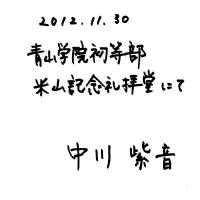 2012.11.30
青山学院初等部
米山記念礼拝堂にて
中川 紫音